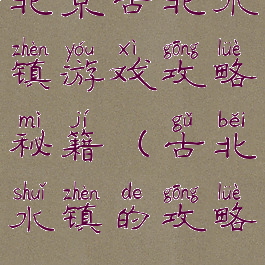 北京古北水
zhèn yóu xì gōng lüè
镇游戏攻略
mì jí gǔ běi
秘籍（古北
shuǐ zhèn de gōng lüè
水镇的攻略